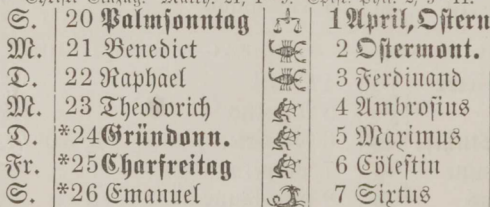 S. 20 Palmsonntag 1 April, Ostern
M. 21 Benedict 2 Ostermont.
D. 22 Raphael 3 Ferdinand
M. 23 Theodorich 4 Ambrosius
D. *24 Gründonn. 5 Maximus
Fr. *25 Charfreitag 6 Cölestin
S. *26 Emanuel 7 Sixtus